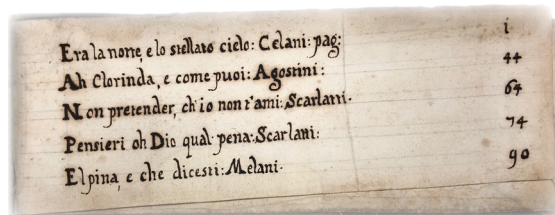 Era la notte, e lo stellato cielo: Celani: pag: i
Ah Clorinda, e come puoi: Agostini: 44
Non pretender, ch'io non t'ami: Scarlatti. 64
Pensieri oh Dio qual pena: Scarlatti: 74
Elpina, e che dicesti: Melani. 90